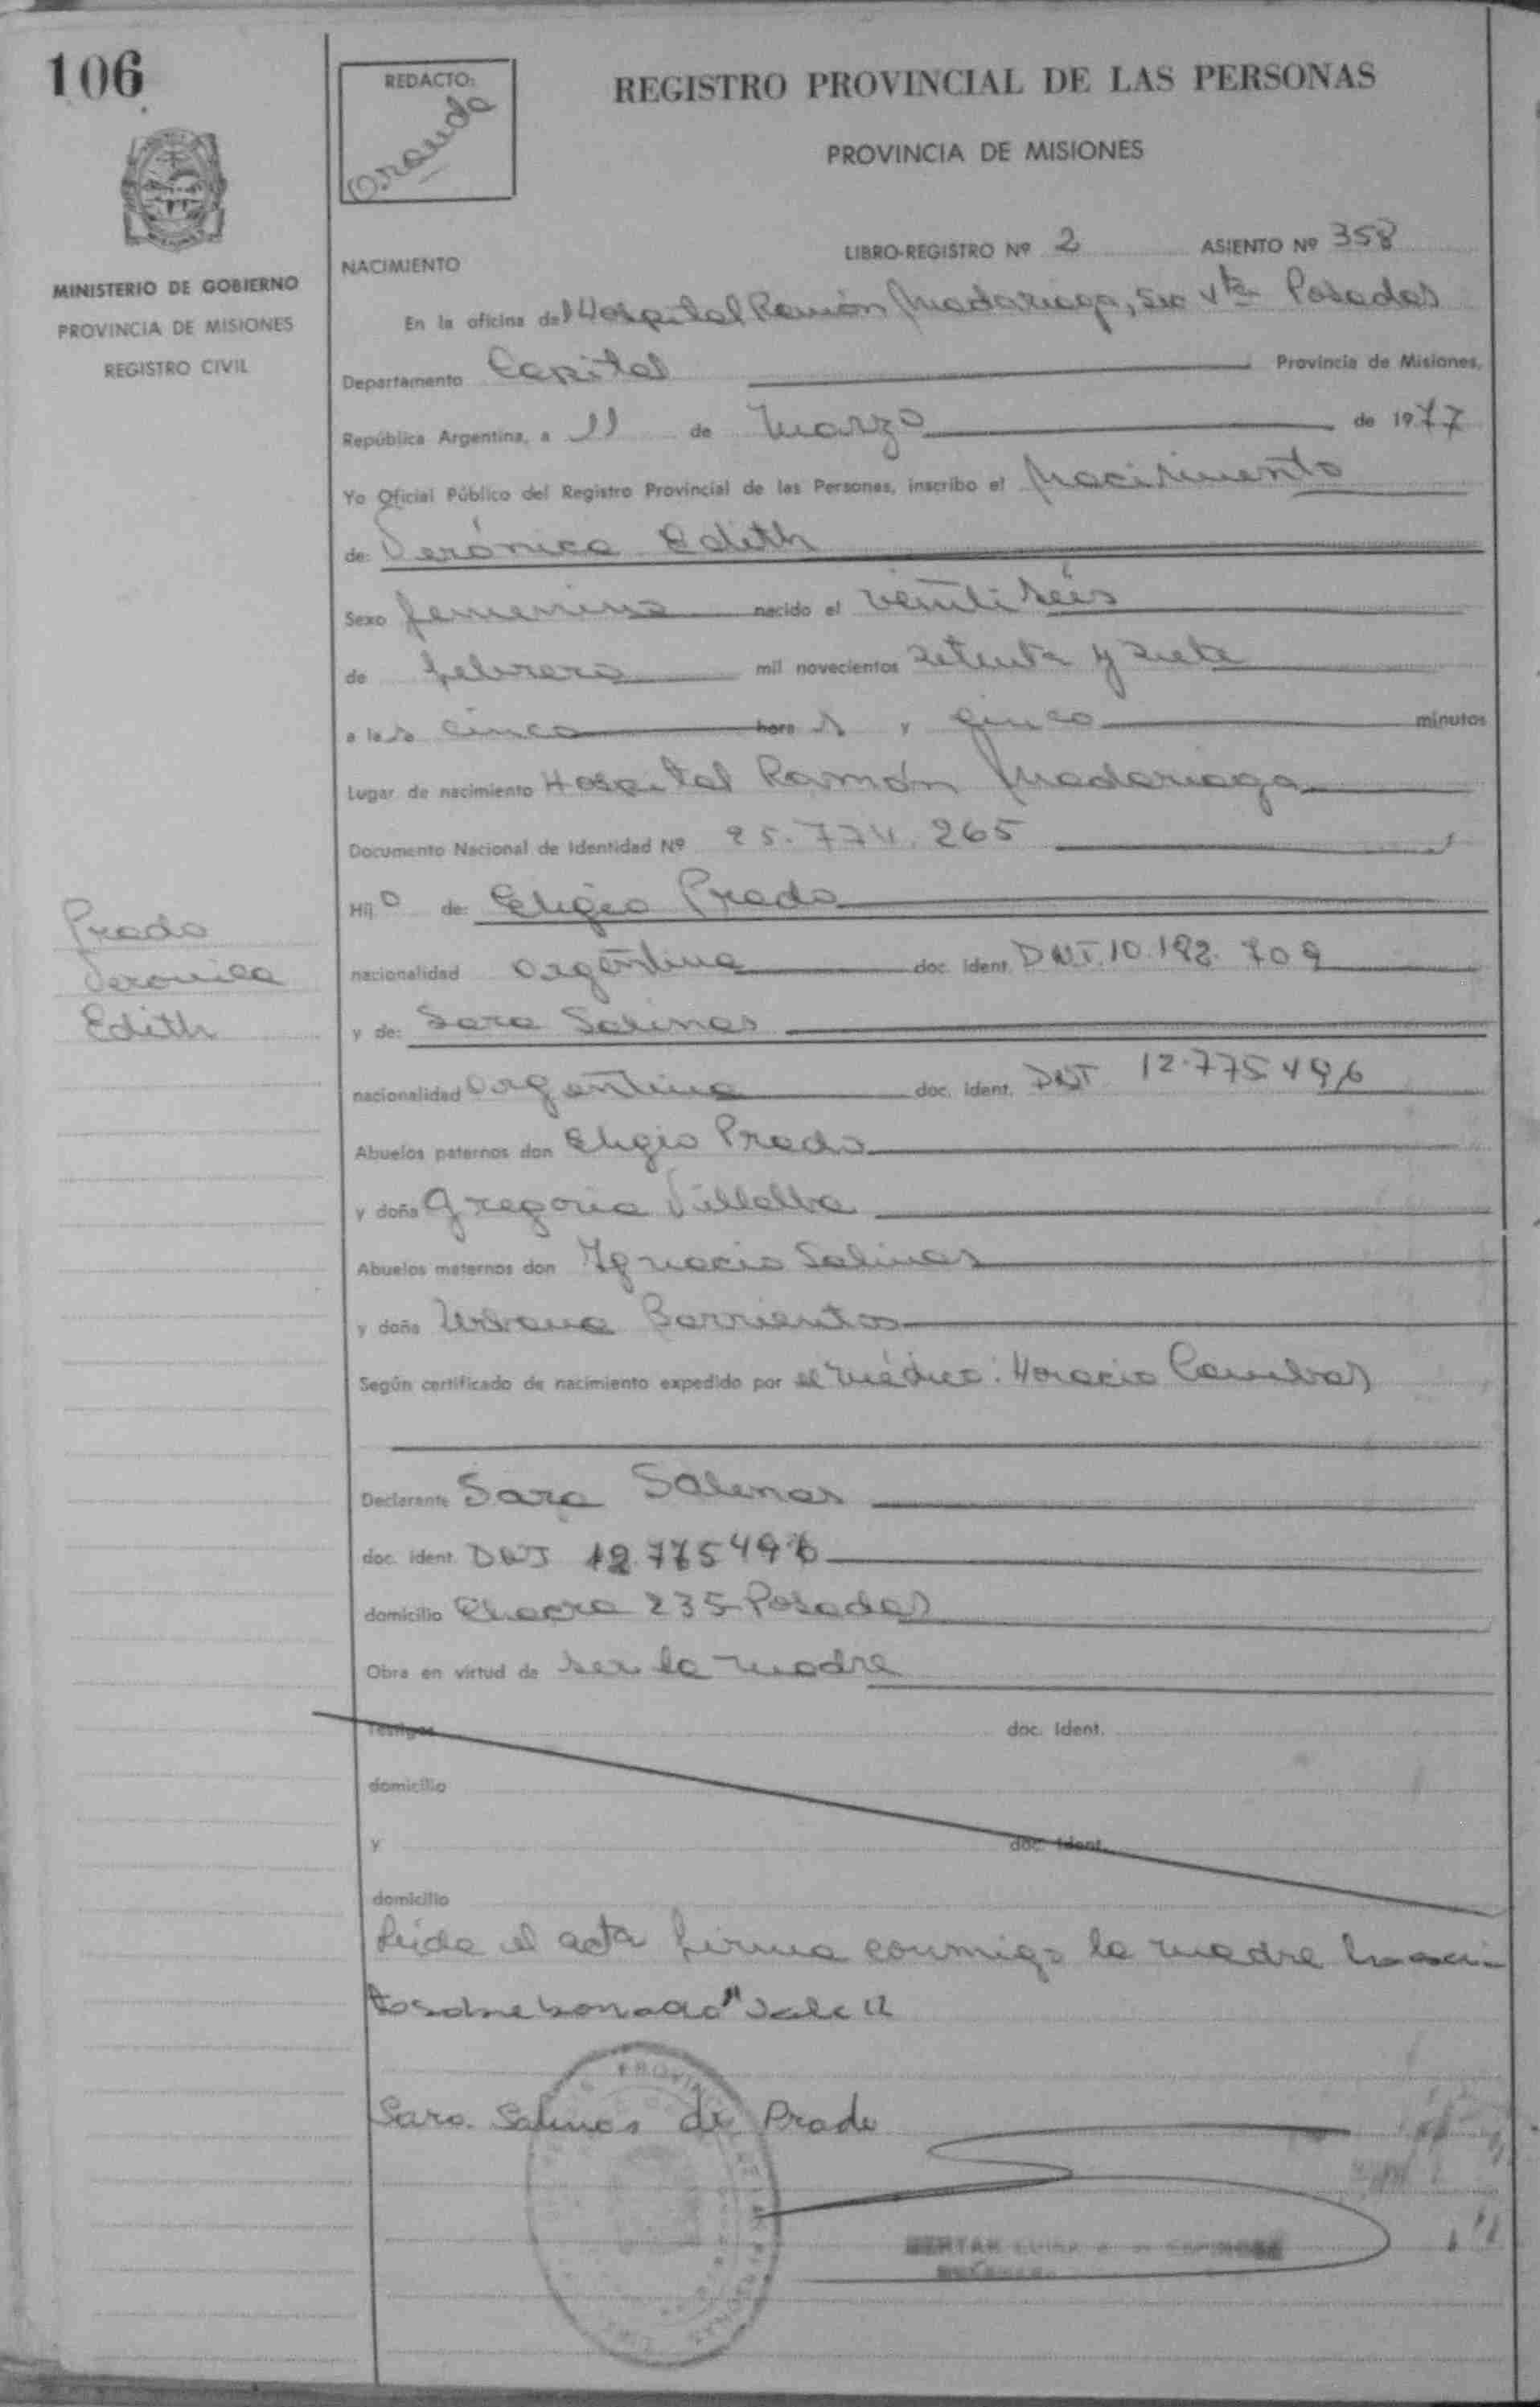 106
REDACTO:
Aranda
REGISTRO PROVINCIAL DE LAS PERSONAS
PROVINCIA DE MISIONES
MINISTERIO DE GOBIERNO
PROVINCIA DE MISIONES
REGISTRO CIVIL
NACIMIENTO
LIBRO-REGISTRO Nº 2 ASIENTO Nº 358
En la oficina del Hospital Ramón Madariaga, Posadas
Departamento Capital Provincia de Misiones,
República Argentina, a 11 de Marzo de 1977
Yo Oficial Público del Registro Provincial de las Personas, inscribo el Nacimiento
de: Verónica Edith
Sexo femenino nacido el veintiseis
de febrero mil novecientos setenta y siete
a las cinco hora s y cinco minutos
Lugar de nacimiento Hospital Ramón Madariaga
Documento Nacional de Identidad Nº 25.774.265
Hij a de: Eligio Prado
nacionalidad argentina doc. Ident. DNI. 10.192.709
y de: Sara Salinas
nacionalidad argentina doc. Ident. DNI 12.775.496
Abuelos paternos don Eligio Prado
y doña Gregoria Villalba
Abuelos maternos don Ignacio Salinas
y doña Urbana Barrientos
Según certificado de nacimiento expedido por el médico: Horacio Cambas
Declarante Sara Salinas
doc. Ident. DNI 12.775496
domicilio Chacra 235 Posadas
Obra en virtud de ser la madre
Testigos doc. Ident.
domicilio
y doc. Ident.
domicilio
Leida el acta firma conmigo la madre
sobre vale
Sara Salinas de Prado
Prado
Veronica
Edith